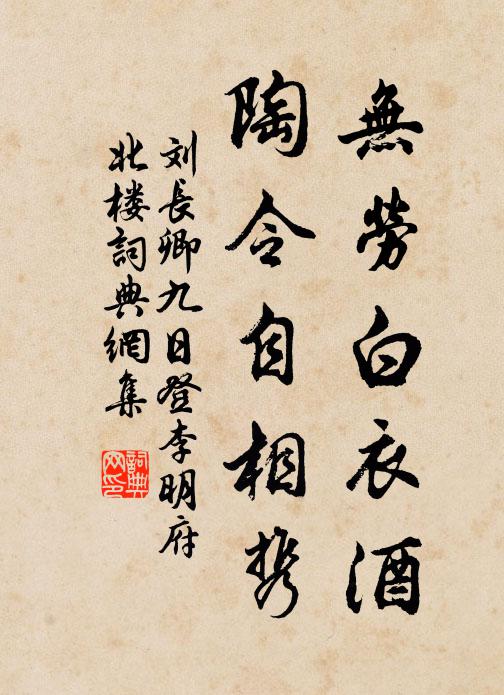 無勞白衣酒
陶令自相攜
刘長卿九日登李明府
北楼詞典網集
詞典網印